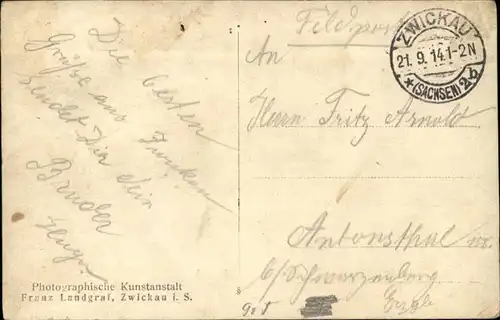 Die besten
Grüße aus Zwickau
sendet Dir dein
Bruder
Hugo.
Photographische Kunstanstalt
Franz Landgraf, Zwickau i. S.
Feldpost
ZWICKAU
21. 9. 14. 1-2 N
* (SACHSEN) 2b
An
Herrn Fritz Arnold
Antonsthal
b/Schwarzenberg
Erzgb